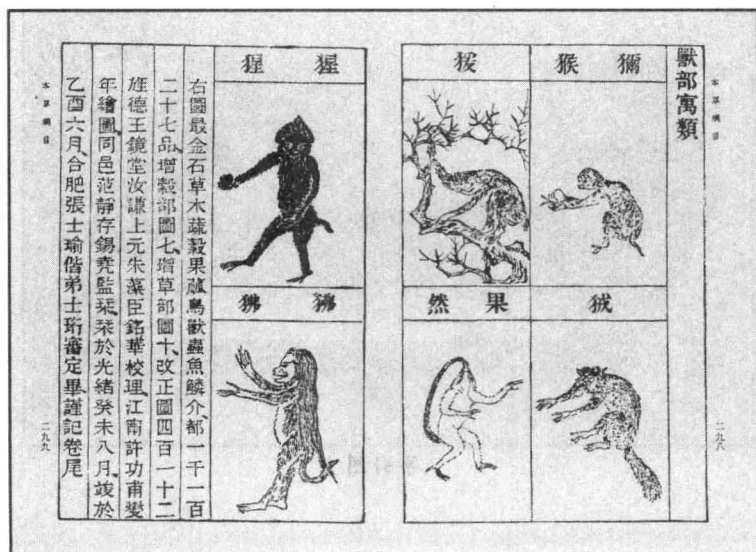 本草綱目
二九八
獸部寓類
獼猴
狨
猨
果然
猩猩
狒狒
右圖最金石草木蔬穀果蓏鳥獸蟲魚鱗介、都一千一百
二十七品、增穀部圖七、增草部圖十、改正圖四百一十二
旌德王鏡堂汝謙上元朱藻臣銘華校理、江甯許功甫燮
年繪圖、同邑范靜存錫堯監栞、栞於光緒癸未八月、竣於
乙酉六月、合肥張士瑜偕弟士珩審定畢、謹記卷尾
本草綱目
二九九